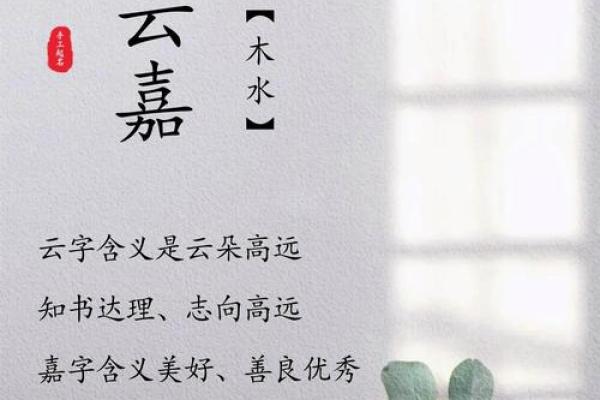 云嘉
【木水】
手工起名
云字含义是云朵高远
知书达理、志向高远
嘉字含义美好、善良优秀